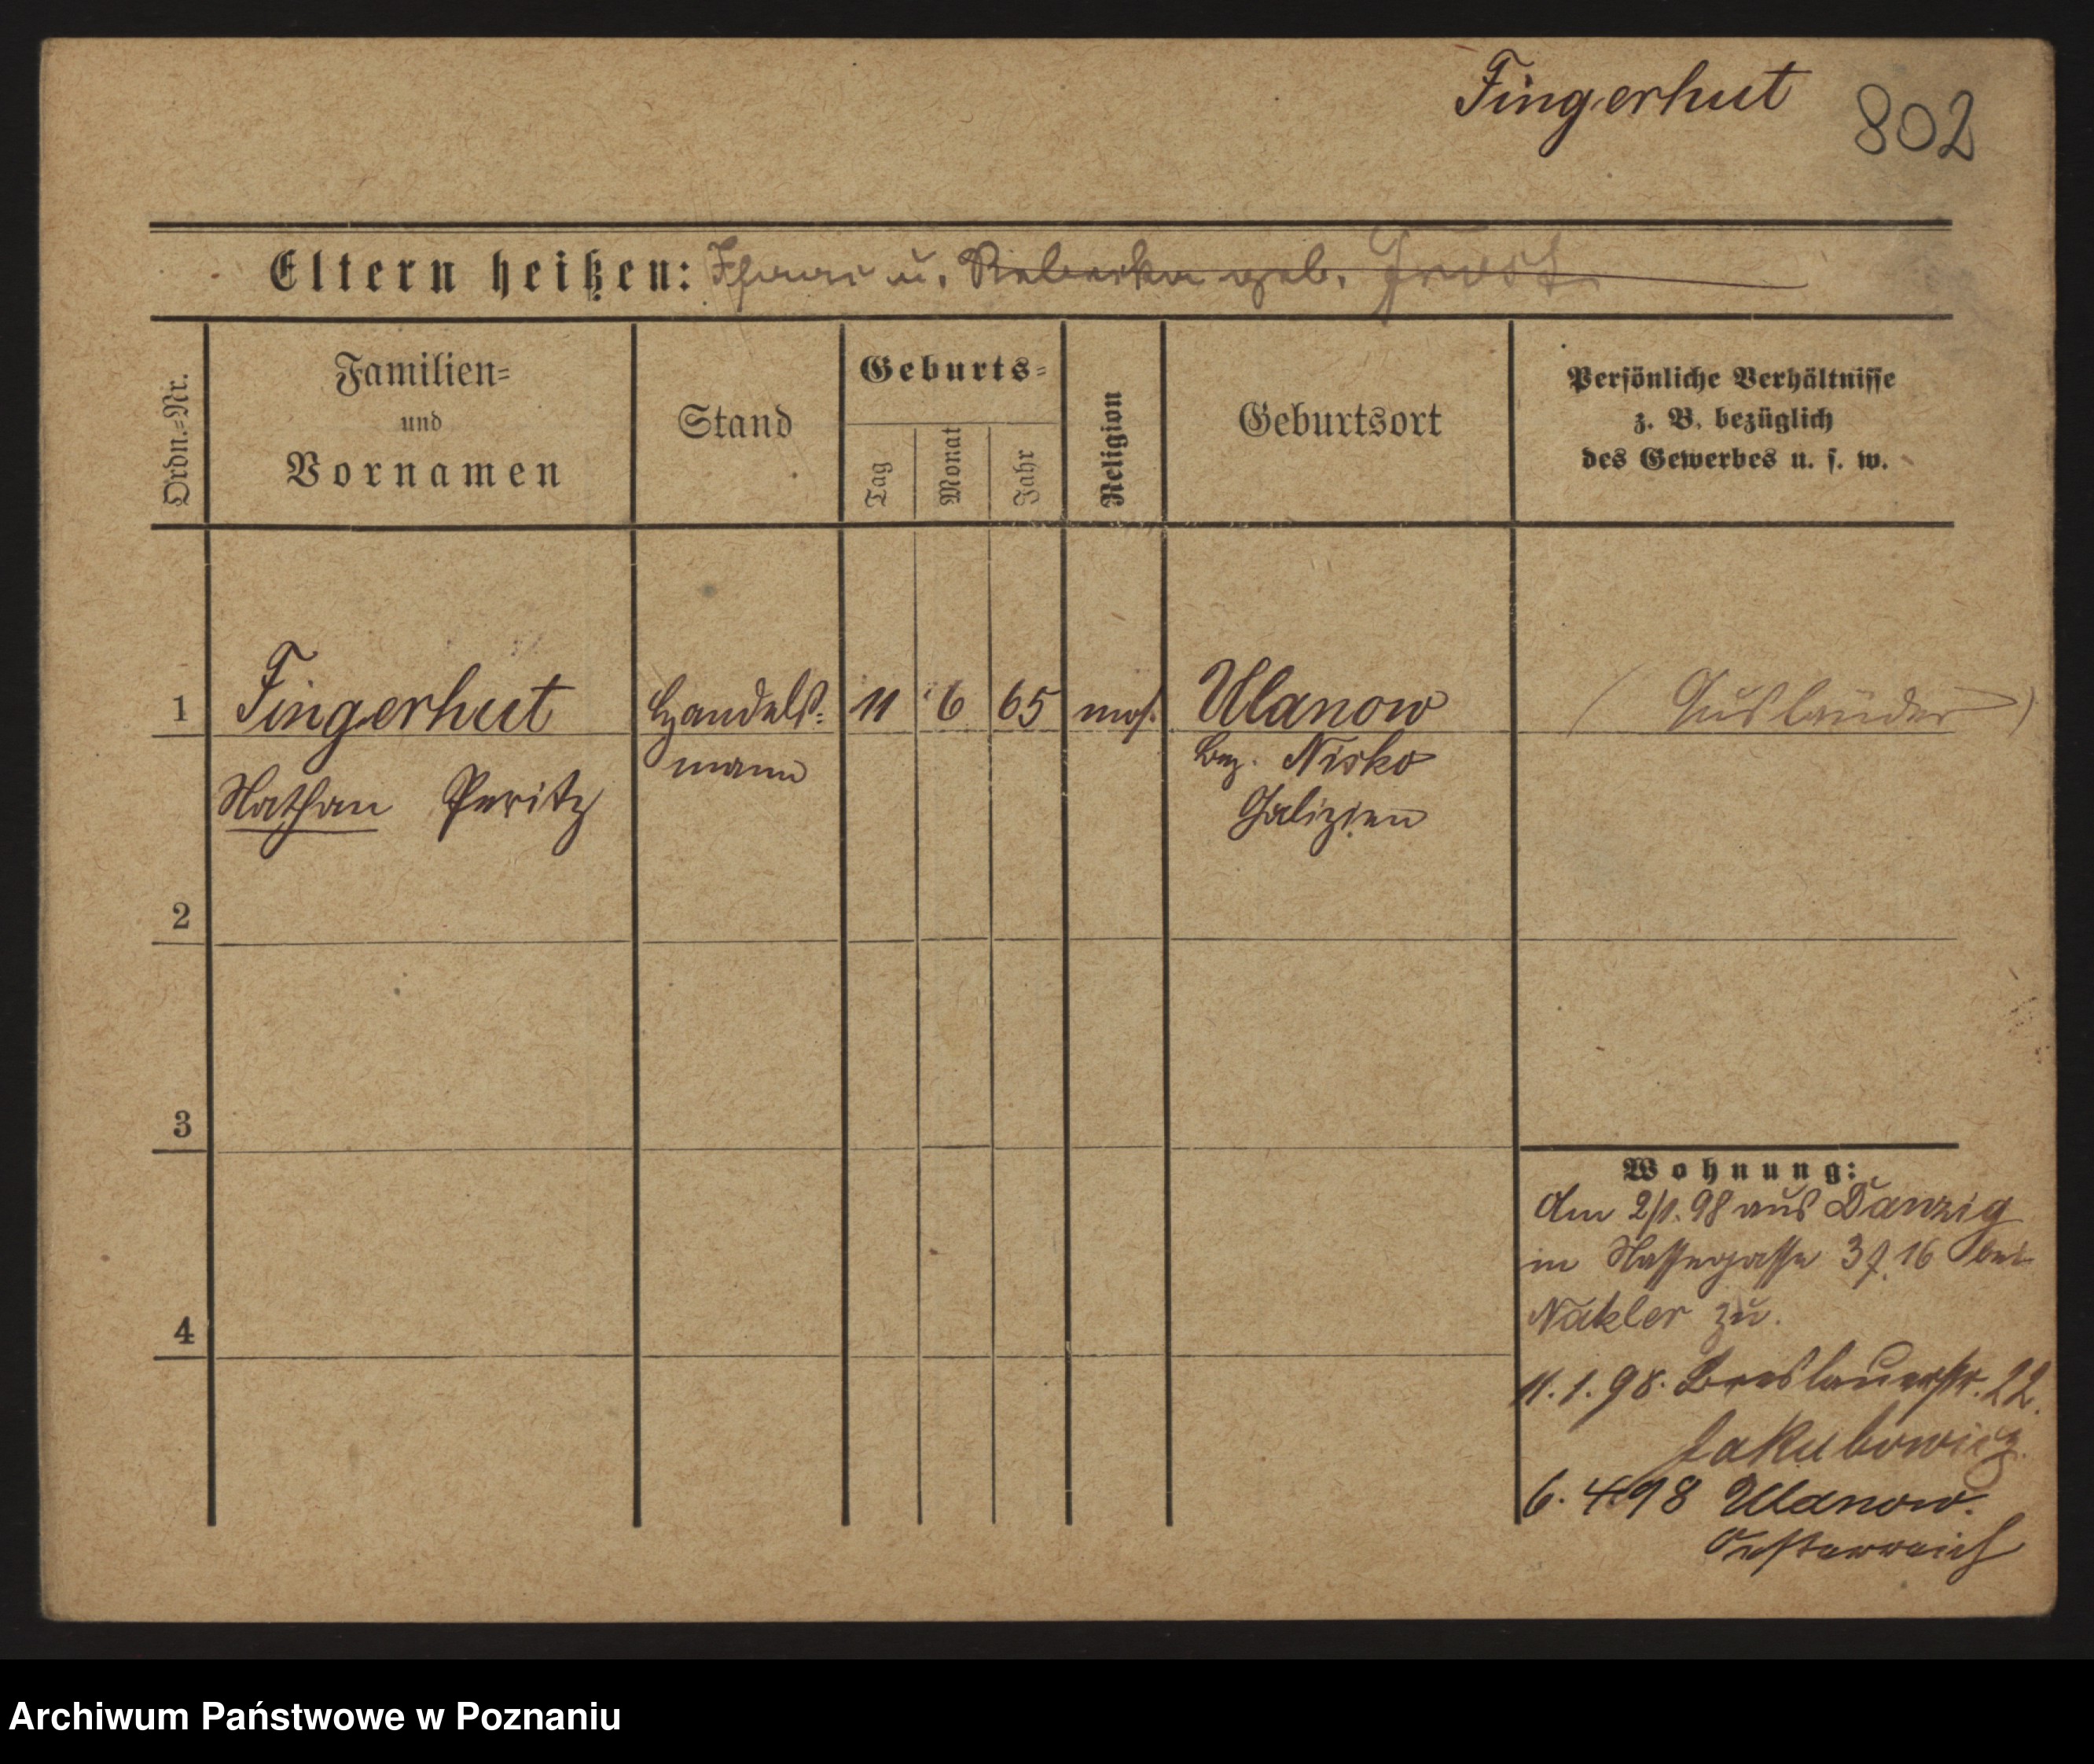 Fingerhut
802
Eltern heißen: u. Rebecka geb.
Ordn.-Nr.
Familien-
und
Vornamen
Stand
Geburts-
Tag
Monat
Jahr
Religion
Geburtsort
Persönliche Verhältnisse
z. B. bezüglich
des Gewerbes u. s. w.
1 Fingerhut Handels- 11 6 65 mos. Ulanow (Ausländer)
Nathan Peritz mann Bez. Nisko
Galizien
2
3
4
Wohnung:
Am 2/1. 98 aus Danzig
in Nassegasse 16 bei
Nakler zu.
11. 1. 98. Breslauerstr. 22.
Jakubowicz.
6. 4 98 Ulanow.
Oesterreich
Archiwum Państwowe w Poznaniu